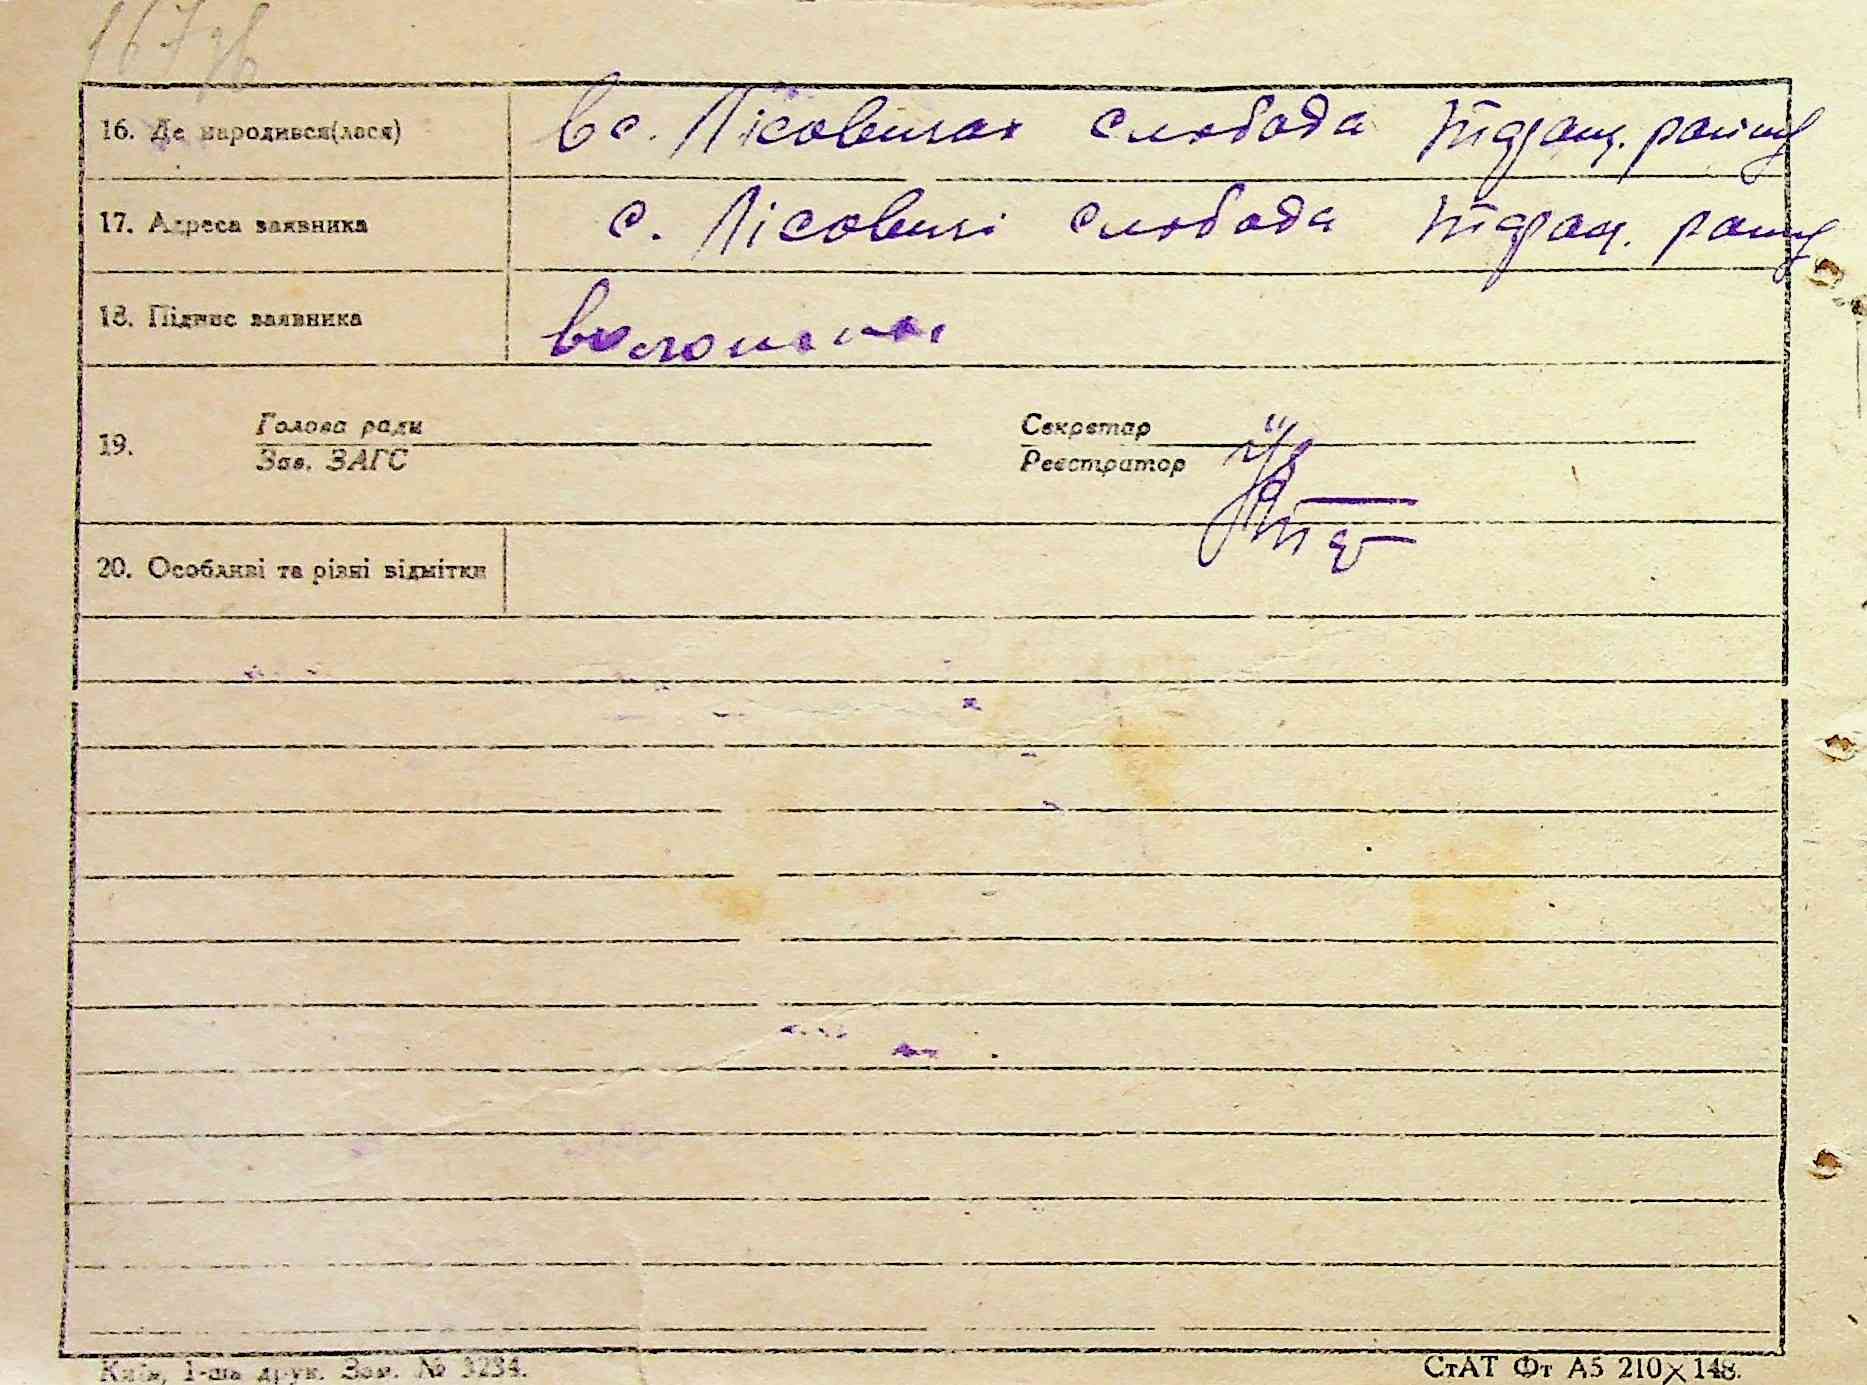 16. Де народився(лася) в с. Лісовичах слобода Таращ. району
17. Адреса заявника с. Лісовичі слобода Таращ. району
18. Підпис заявника
Голова ради Секретар
19.
Зав. ЗАГС Реєстратор
20. Особливі та різні відмітки
Київ, 1-ша друк. Зам. № 3234. СтАТ Фт А5 210×148.